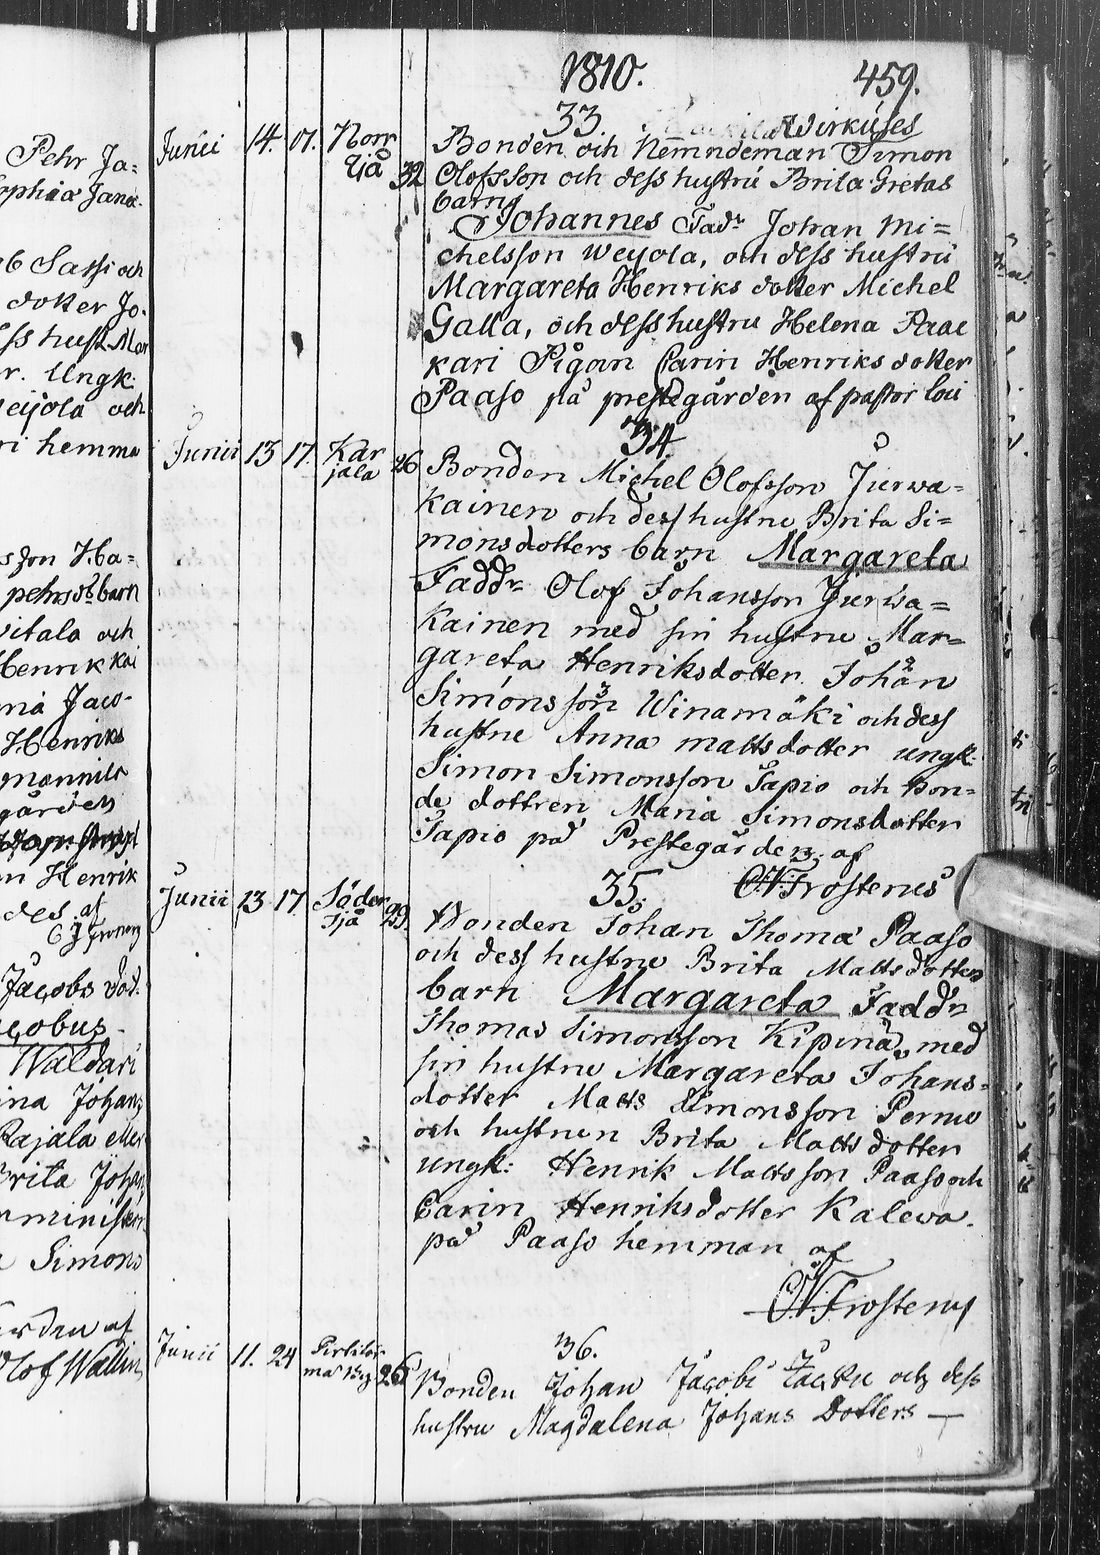 Pehr Ja=
ophia Jana-
ob Sassi och
dotter Jo.
ess hust. Mar
r. Ungk.
weijola och
ri hemma
sson Ha=
pehrs db barn
vitala och
Henrik Kai
ria Jaco-
Henriks
mannila
gården
n Henrik
des af
Jacobs dod.
acobus.
Waldari
ina Johans
Rajala eller
Brita Johan
minister
a Simons
ården af
Olof Wallin
1810. 459.
33.
Junii 14. 17. Norr Sjå 32
Bonden och Nemndeman Simon
Olofsson och dess hustru Brita Gretas
barn
Johannes Fadr Johan Mi=
chelsson Weyola, och dess hustru
Margareta Henriks dotter Michel
Galla, och dess hustru Helena Paae
kari Pigan Carin Henriks dotter
Paaso på prestegården af pastor loci
34.
Junii 13 17. Kar jala 26
Bonden Michel Olofsson Jurwa=
kainen och dess hustru Brita Si=
monsdotters barn Margareta
Faddr Olof Johansson Jurwa=
kainen med sin hustru Mar=
gareta Henriksdotter. Johan
Simonsson Winamäki och dess
hustru Anna matts dotter ungk.
Simon Simonsson Tapio och bon=
de dottren Maria Simonsdotter
Tapio på Prestegården af
CN Frosterus
35.
Junii 13 17. Söder sjå 29.
Bonden Johan Thoma Paaso
och dess hustru Brita Mattsdotters
barn Margareta Faddr
Thomas Simonsson Kipinä, med
sin hustru Margareta Johans=
dotter Matts Simonsson Pernu
och hustrun Brita Mattsdotter
ungk: Henrik Mattsson Paaso och
Carin Henriksdotter Kaleva.
på Paaso hemman af
CN Frosterus
36.
Junii 11. 24 26
Bonden Johan Jacobi och dess
hustru Magdalena Johans Dotters —